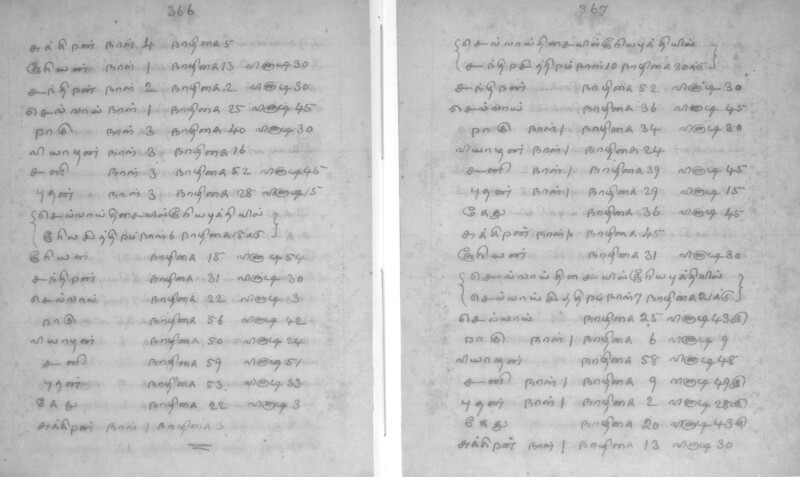 366
சுக்கிரன் நாள் 4 நாழிகை 5
சூரியன் நாள் 1 நாழிகை 13 வினாடி 30
சந்திரன் நாள் 2 நாழிகை 2 வினாடி 30
செவ்வாய் நாள் 1 நாழிகை 25 வினாடி 45
ராகு நாள் 3 நாழிகை 40 வினாடி 30
வியாழன் நாள் 3 நாழிகை 16
சனி நாள் 3 நாழிகை 52 வினாடி 45
புதன் நாள் 3 நாழிகை 28 வினாடி 15
செவ்வாய் திசையில் சூரிய புத்தியில்
சூரிய நாள் 6 நாழிகை 18
சூரியன் நாழிகை 18 வினாடி 54
சந்திரன் நாழிகை 31 வினாடி 30
செவ்வாய் நாழிகை 22 வினாடி 3
ராகு நாழிகை 56 வினாடி 42
வியாழன் நாழிகை 50 வினாடி 24
சனி நாழிகை 59 வினாடி 51
புதன் நாழிகை 53 வினாடி 33
கேது நாழிகை 22 வினாடி 3
சுக்கிரன் நாள் 1 நாழிகை 3
367
செவ்வாய் திசையில் சூரிய புத்தியில்
சந்திர நாள் 10 நாழிகை 30
சந்திரன் நாழிகை 52 வினாடி 30
செவ்வாய் நாழிகை 36 வினாடி 45
ராகு நாள் 1 நாழிகை 34 வினாடி 30
வியாழன் நாள் 1 நாழிகை 24
சனி நாள் 1 நாழிகை 39 வினாடி 45
புதன் நாள் 1 நாழிகை 29 வினாடி 15
கேது நாழிகை 36 வினாடி 45
சுக்கிரன் நாள் 1 நாழிகை 45
சூரியன் நாழிகை 31 வினாடி 30
செவ்வாய் திசையில் சூரிய புத்தியில்
செவ்வாய் நாள் 7 நாழிகை 21
செவ்வாய் நாழிகை 25 வினாடி 43
ராகு நாள் 1 நாழிகை 6 வினாடி 9
வியாழன் நாழிகை 58 வினாடி 48
சனி நாள் 1 நாழிகை 9 வினாடி 49
புதன் நாள் 1 நாழிகை 2 வினாடி 28
கேது நாழிகை 20 வினாடி 43
சுக்கிரன் நாள் 1 நாழிகை 13 வினாடி 30